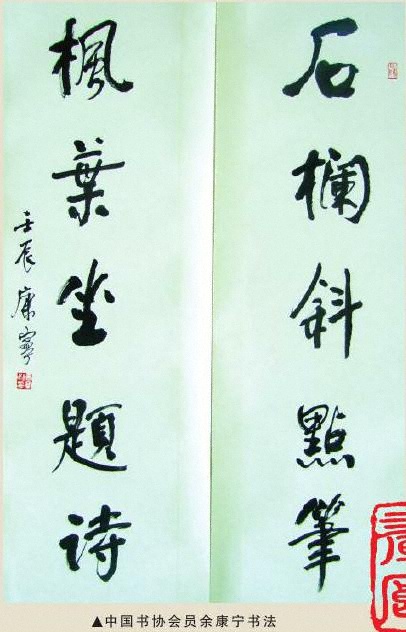 石欄斜點筆
楓葉坐題诗
壬辰康寧
▲中国书协会员余康宁书法